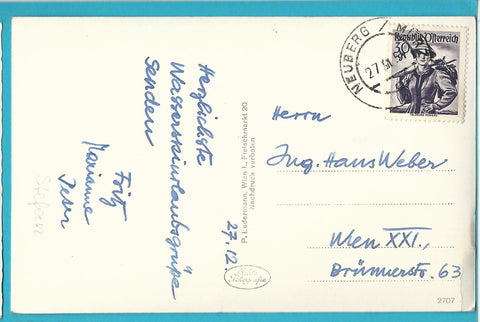 Herzlichste
Wasserskiurlaubsgrüße
senden
Fritz
Marianne
Peter
Stefan
27.12.
P. Ledermann, Wien I., Fleischmarkt 20
Nachdruck verboten
NEUBERG
27
Republik Österreich
30
Herrn
Ing. Hans Weber
Wien XXI.,
Brünnerstr. 63
2707